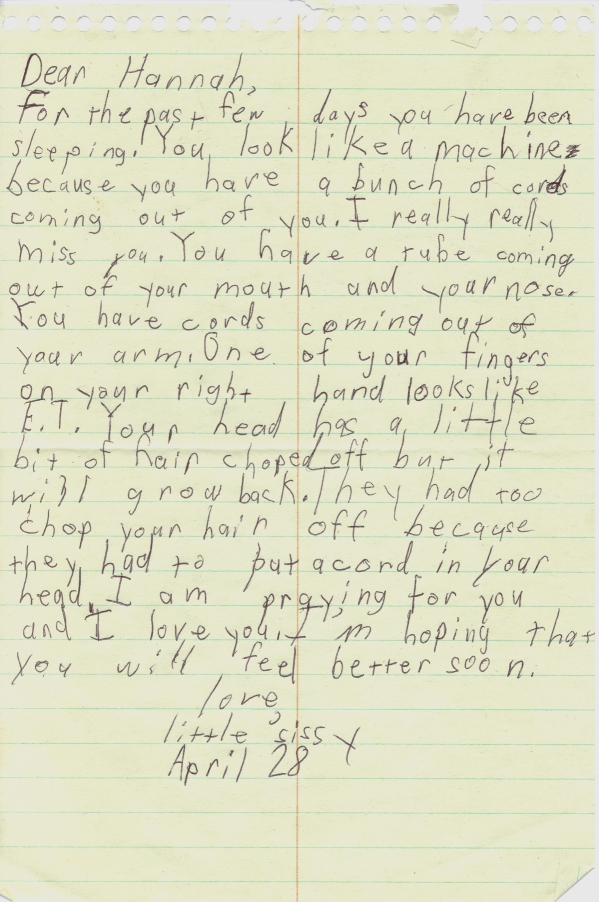 Dear Hannah,
For the past few days you have been
sleeping. You look like a machine
because you have a bunch of cords
coming out of you. I really really
miss you. You have a tube coming
out of your mouth and your nose.
You have cords coming out of
your arm. One of your fingers
on your right hand looks like
E.T. Your head has a little
bit of hair choped off but it
will grow back. They had too
chop your hair off because
they had to put a cord in your
head. I am praying for you
and I love you. I'm hoping that
you will feel better soon.
love,
little sissy
April 28